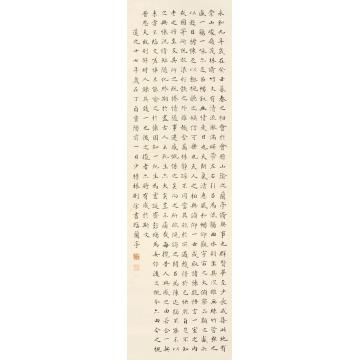 永和九年歲在癸丑暮春之初會於會稽山陰之蘭亭脩禊事也群賢畢至少長咸集此地有
崇山峻領茂林脩竹又有清流激湍映帶左右引以為流觴曲水列坐其次雖無絲竹管弦之
盛一觴一詠亦足以暢敘幽情是日也天朗氣清惠風和暢仰觀宇宙之大俯察品類之盛所
以遊目騁懷足以極視聽之娛信可樂也夫人之相與俯仰一世或取諸懷抱悟言一室之內
或因寄所託放浪形骸之外雖趣舍萬殊靜躁不同當其欣於所遇暫得於己快然自足不知
老之將至及其所之既惓情隨事遷感慨係之矣向之所欣俛仰之間以為陳迹猶不能不以
之興懷況脩短隨化終期於盡古人云死生亦大矣豈不痛哉每攬昔人興感之由若合一契
未嘗不臨文嗟悼不能喻之於懷固知一死生為虛誕齊彭殤為妄作後之視今亦由今之視
昔悲夫故列敘時人錄其致一也後之攬者亦將有感於斯文
道光十七年歲在丁酉重陽前一日少穆林則徐書臨蘭亭